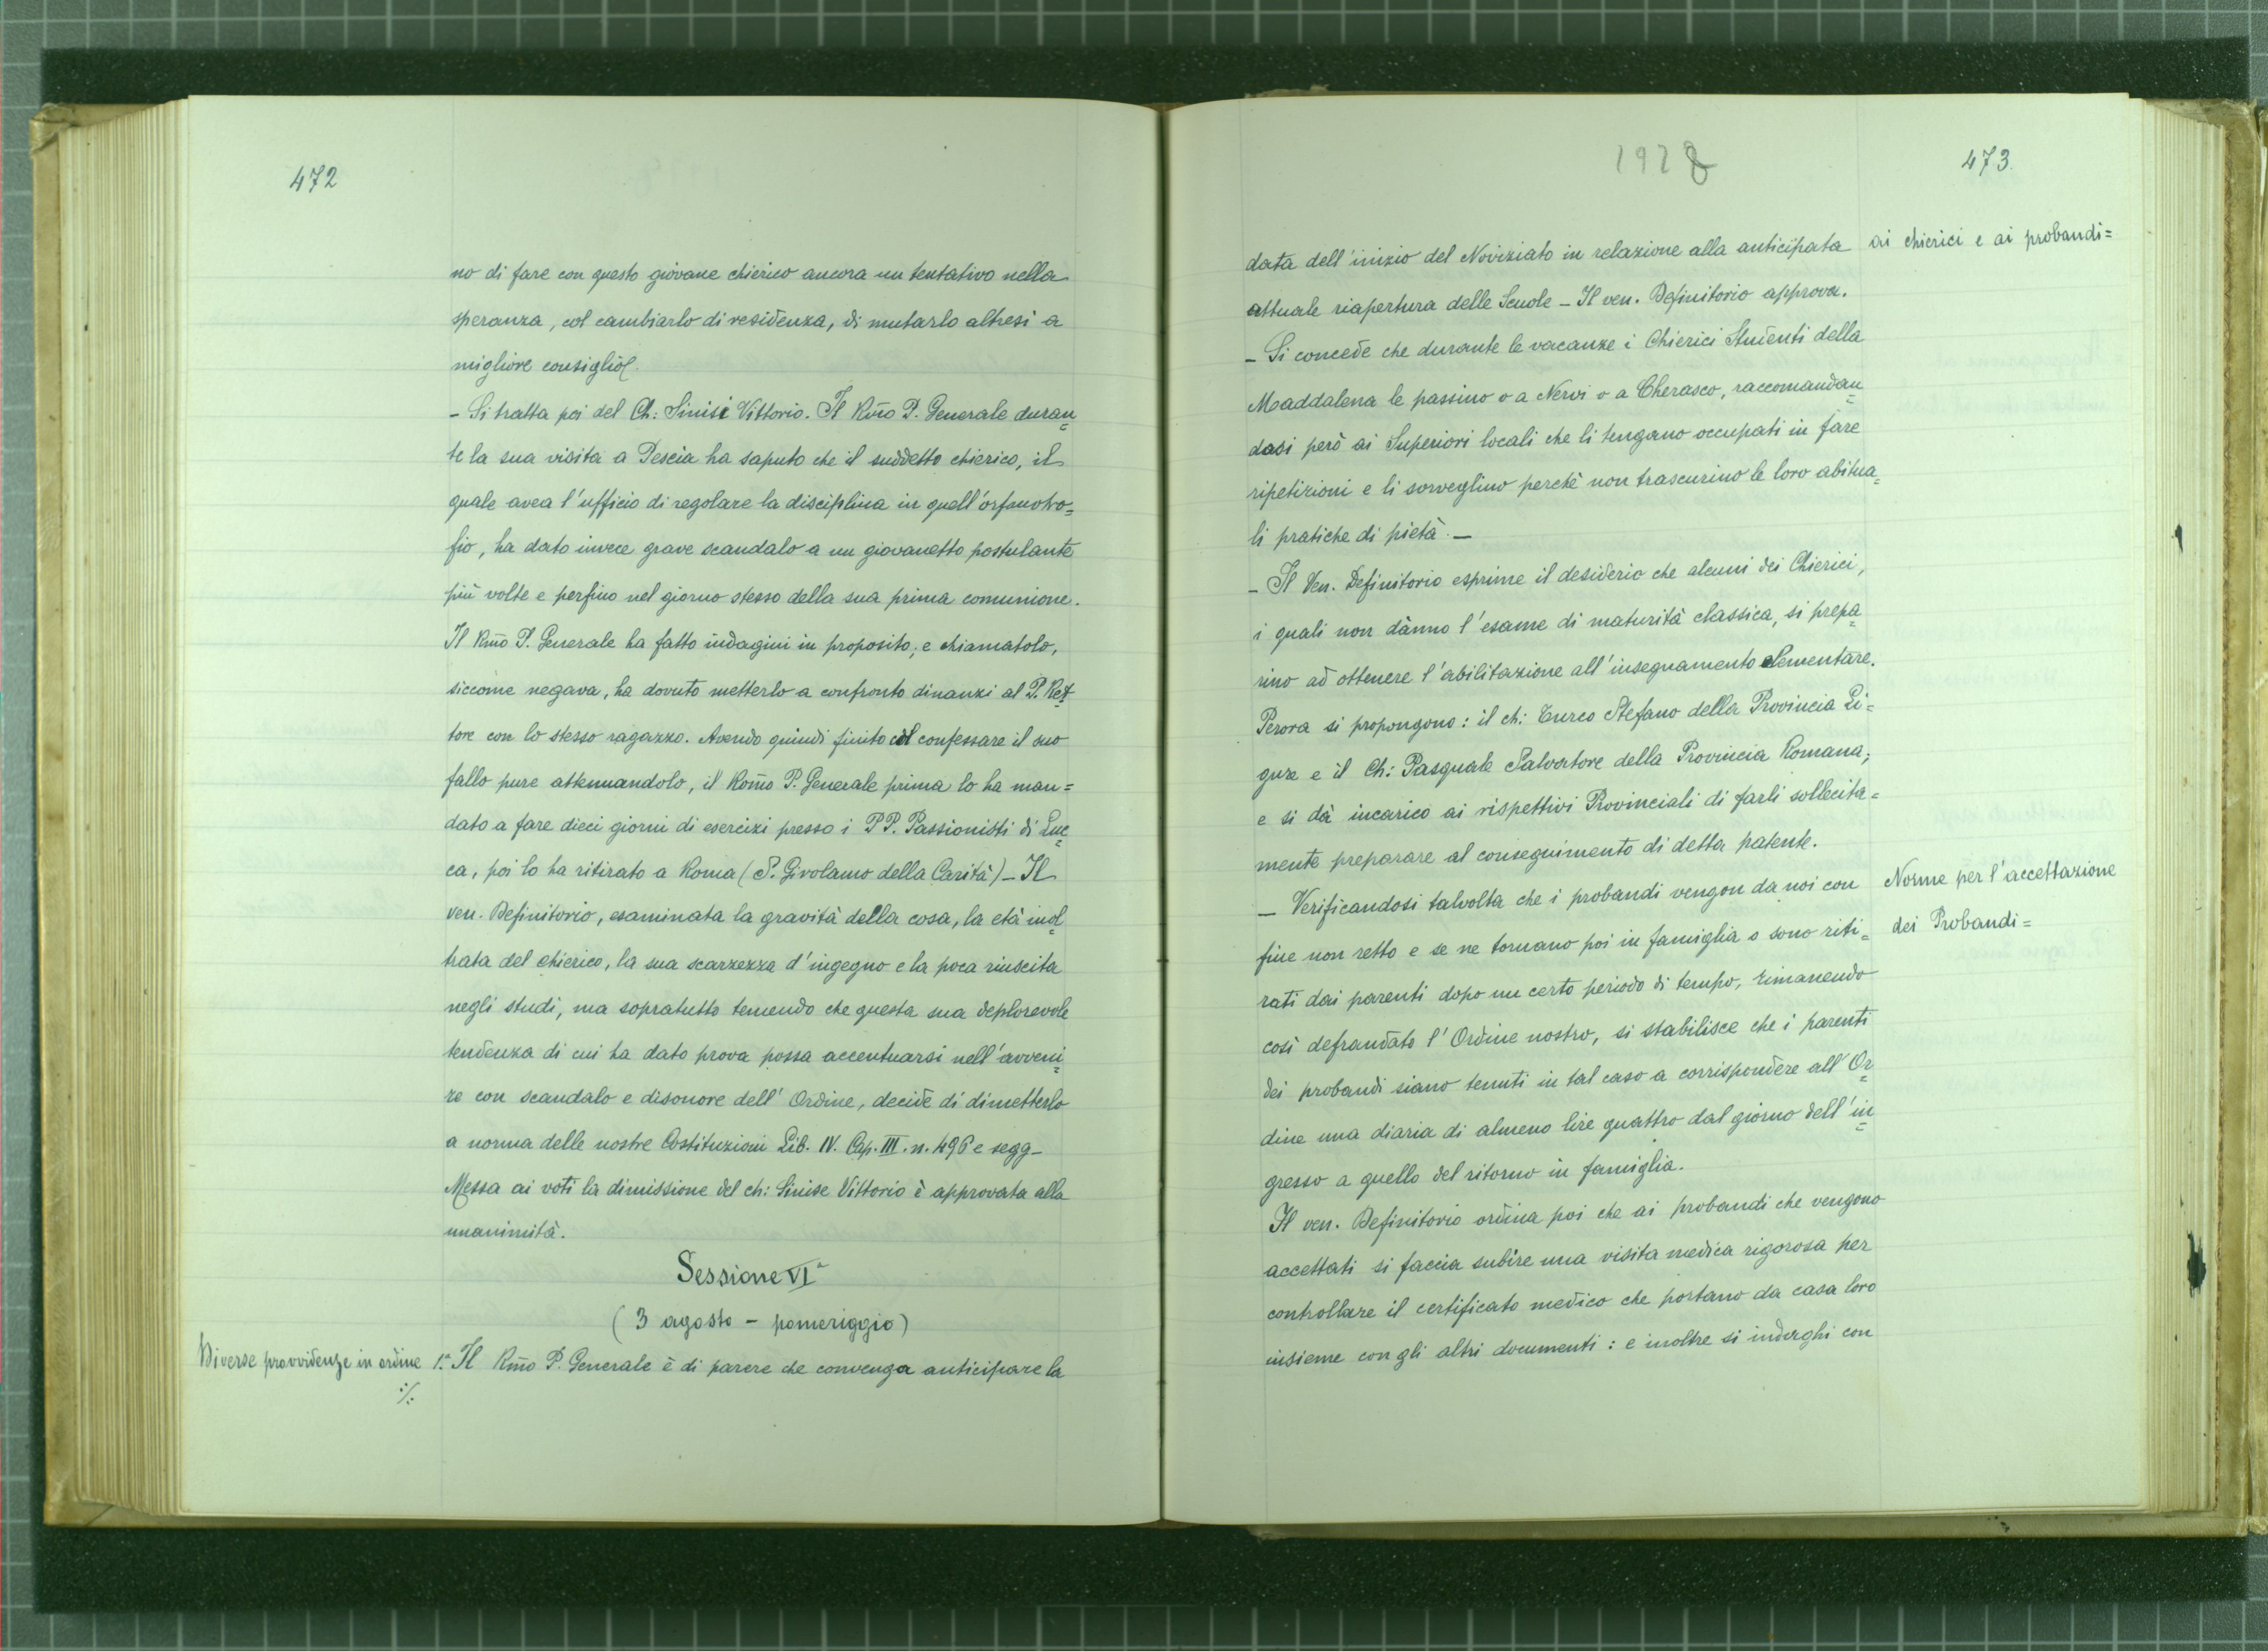 472
no di fare con questo giovane chierico ancora un tentativo nella
speranza, col cambiarlo di residenza, di mutarlo altresì a
migliore consiglio.
- Si tratta poi del Ch: Sinisi Vittorio. Il Rm̃o P. Generale duran=
te la sua visita a Pescia ha saputo che il suddetto chierico, il
quale avea l'ufficio di regolare la disciplina in quell'orfanotro=
fio, ha dato invece grave scandalo a un giovanetto postulante
più volte e perfino nel giorno stesso della sua prima comunione.
Il Rm̃o P. Generale ha fatto indagini in proposito; e chiamatolo,
siccome negava, ha dovuto metterlo a confronto dinanzi al P. Ret=
tore con lo stesso ragazzo. Avendo quindi finito col confessare il suo
fallo pure attenuandolo, il Rom̃o P. Generale prima lo ha man=
dato a fare dieci giorni di esercizi presso i PP. Passionisti di Luc=
ca, poi lo ha ritirato a Roma (S. Girolamo della Carità) - Il
ven. Definitorio, esaminata la gravità della cosa, la età inol=
trata del chierico, la sua scarzezza d'ingegno e la poca riuscita
negli studi, ma sopratutto temendo che questa sua deplorevole
tendenza di cui ha dato prova possa accentuarsi nell'avveni=
re con scandalo e disonore dell'Ordine, decide di dimetterlo
a norma delle nostre Costituzioni Lib. IV. Cap. III. n. 496 e segg-
Messa ai voti la dimissione del ch: Sinise Vittorio è approvata alla
unanimità.
Sessione VIª
(3 agosto - pomeriggio)
Diverse provvidenze in ordine
·/.
1.ª Il Rm̃o P. Generale è di parere che convenga anticipare la
1928
473
ai chierici e ai probandi=
data dell'inizio del Noviziato in relazione alla anticipata
attuale riapertura delle Scuole - Il ven. Definitorio approva.
- Si concede che durante le vacanze i Chierici Studenti della
Maddalena le passino o a Nervi o a Cherasco, raccomandan=
dosi però ai Superiori locali che li tengano occupati in fare
ripetizioni e li sorveglino perchè non trascurino le loro abitua=
li pratiche di pietà. -
- Il Ven. Definitorio esprime il desiderio che alcuni dei Chierici,
i quali non dànno l'esame di maturità classica, si prepa=
rino ad ottenere l'abilitazione all'insegnamento elementare.
Perora si propongono: il ch: Turco Stefano della Provincia Li=
gure e il Ch: Pasquale Salvatore della Provincia Romana;
e si dà incarico ai rispettivi Provinciali di farli sollecita=
mente preparare al conseguimento di detta patente.
Norme per l'accettazione
dei Probandi=
- Verificandosi talvolta che i probandi vengon da noi con
fine non retto e se ne tornano poi in famiglia o sono riti=
rati dai parenti dopo un certo periodo di tempo, rimanendo
così defraudato l'Ordine nostro, si stabilisce che i parenti
dei probandi siano tenuti in tal caso a corrispondere all'Or=
dine una diaria di almeno lire quattro dal giorno dell'in=
gresso a quello del ritorno in famiglia.
Il ven. Definitorio ordina poi che ai probandi che vengono
accettati si faccia subìre una visita medica rigorosa per
controllare il certificato medico che portano da casa loro
insieme con gli altri documenti: e inoltre si indaghi con